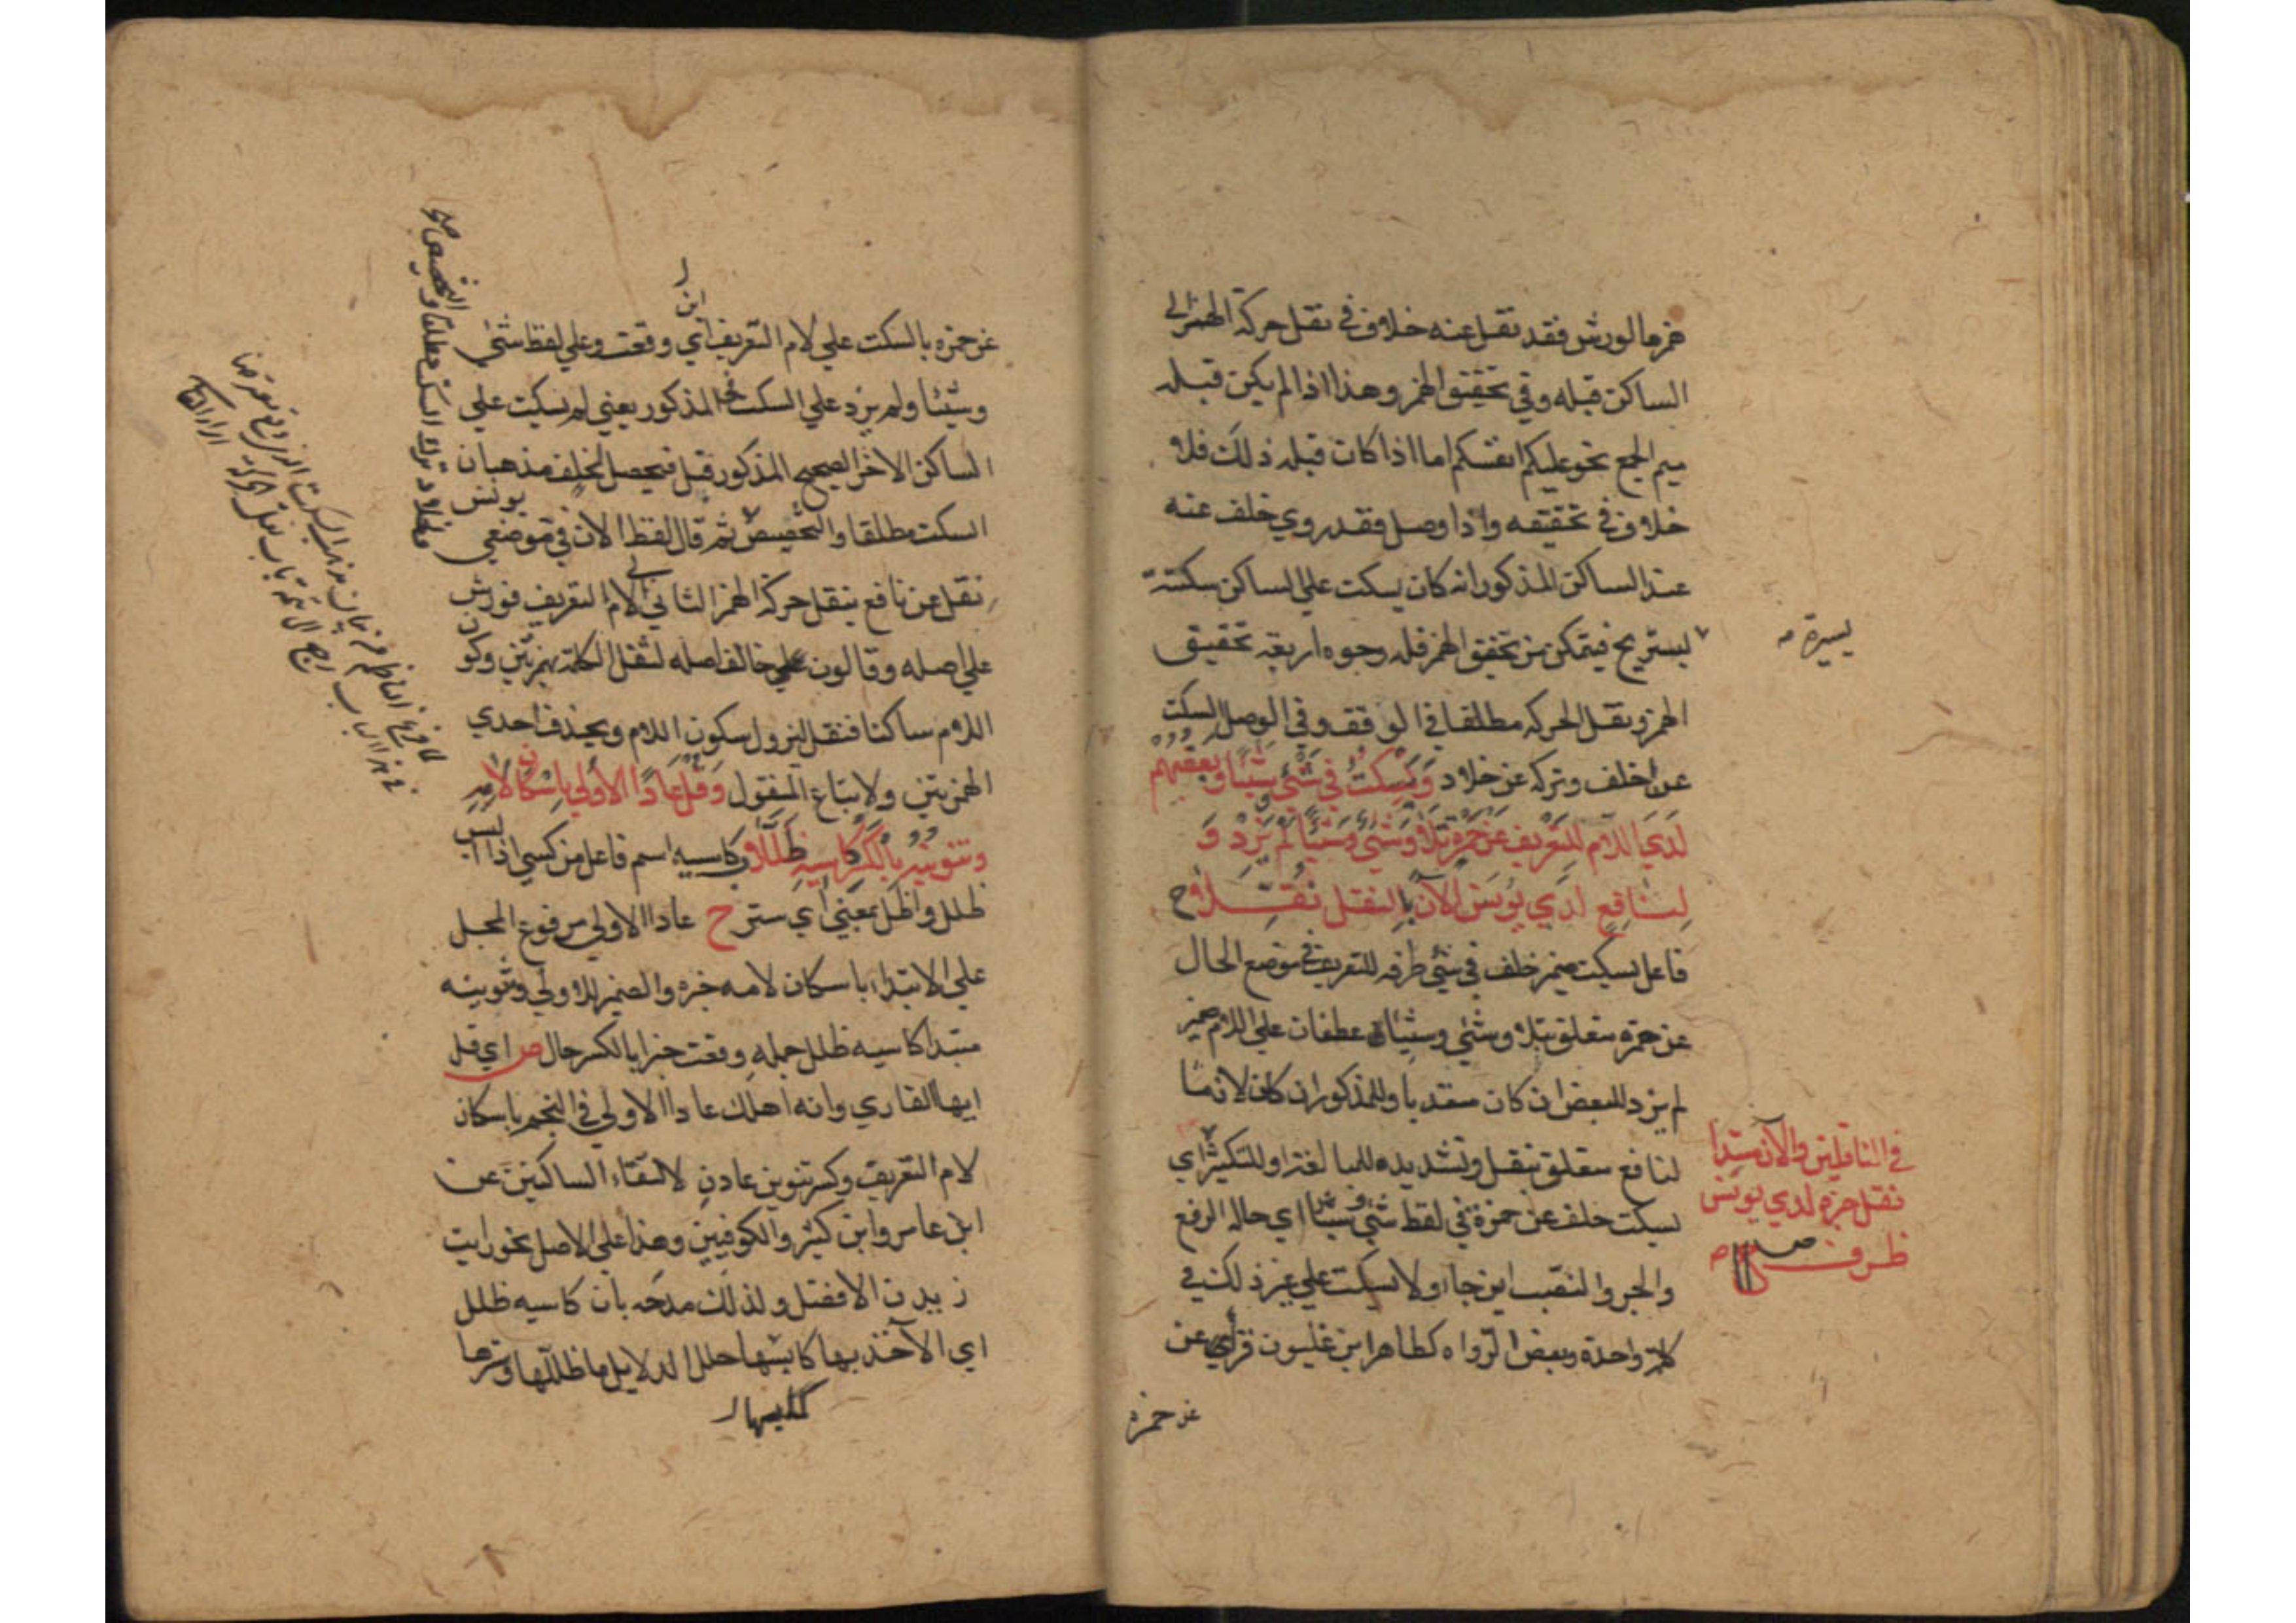 همز ما لورش فقد نقل عنه خلاف في نقل حركة الهمز الي
الساكن قبله وفي تحقيق الهمز وهذا اذا لم يكن قبله
ميم الجمع نحو عليكم انفسكم اما اذا كان قبله ذلك فلا
خلاف في تحقيقه واذا وصل فقد روي خلف عنه
عند الساكن المذكور انه كان يسكت علي الساكن سكتة
ليستريح فيتمكن من تحقق الهمز فله وجوه اربعة تحقيق
يسيرة صح
الهمز ونقل الحركه مطلقا في الوقف وفي الوصل السكت
عن خلف وتركه عن خلاد وَيَسْكُتُ في شَيْءٍ وَشَيْئًا وبعضهم
لَدَي اللام للتعريف عن حمزة تلا وشيء وشيئا لم يزد و
لنافع لدي يونس الآن بالنقل نقلا ح
فاعل يسكت ضمير خلف في شيء ظرفه للتعريف في موضع الحال
عن حمزة متعلق بتلا وشيء وشيئا عطفان علي اللام ضمير
لم يزد للبعض ان كان متعديا وللمذكور ان كان لازما
لنافع متعلق بنقل وتشديده للمبالغة او للتكثير اي
في الناقلين والآن مبتدا
نقل خبره لدي يونس
ظرف ص
يسكت خلف عن حمزة في لفظ شيء وشيئا اي حاله الرفع
والجر والنصب اين جاء ولا يسكت علي غير ذلك في
كلمة واحدة وبعض الرواه كطاهر ابن غلبون قرأ عن
عن حمزة
عن حمزه بالسكت علي لام التعريف اي وقعت وعلي لفظ شيء
اين
وشيئا ولم يزد علي السكت المذكور يعني لم يسكت علي
الساكن الآخر الصحيح المذكور قبل فيحصل لخلف مذهبان
السكت مطلقا والتخصيص ثم قال لفظ الآن في موضعي
يونس
نقل عن نافع بنقل حركة الهمز الثاني الي لام التعريف فورش
علي اصله وقالون خالف اصله لثقل الكلمة بهمزتين وكون
اللام ساكنا فنقل ليزول سكون اللام ويحذف احدي
الهمزتين ولاتباع المنقول وَقُلْ عَادًا الاُولَي بِإسْكَانِ لامِهِ
وتنوينه بالكسر كاسيه ظللا وكاسيه اسم فاعل من كسي اذا البس
ظلل واظل بمعني اي ستر ح عادا الاولي مرفوع المحل
علي الابتداء باسكان لامه خبره والضمير للاولي وتنوينه
مبتدا كاسيه ظلل جمله وقعت خبرا بالكسر حال ص اي قل
ايها القاري وانه اهلك عادا الاولي في النجم باسكان
لام التعريف وكسر تنوين عادن لالتقاء الساكنين عن
ابن عامر وابن كثير والكوفيين وهذا علي الاصل نحو رايت
زيدن الافضل ولذلك مدحه بان كاسيه ظلل
اي الآخذ بها كاسيها حلل الدلايل ما ظللها وسترها